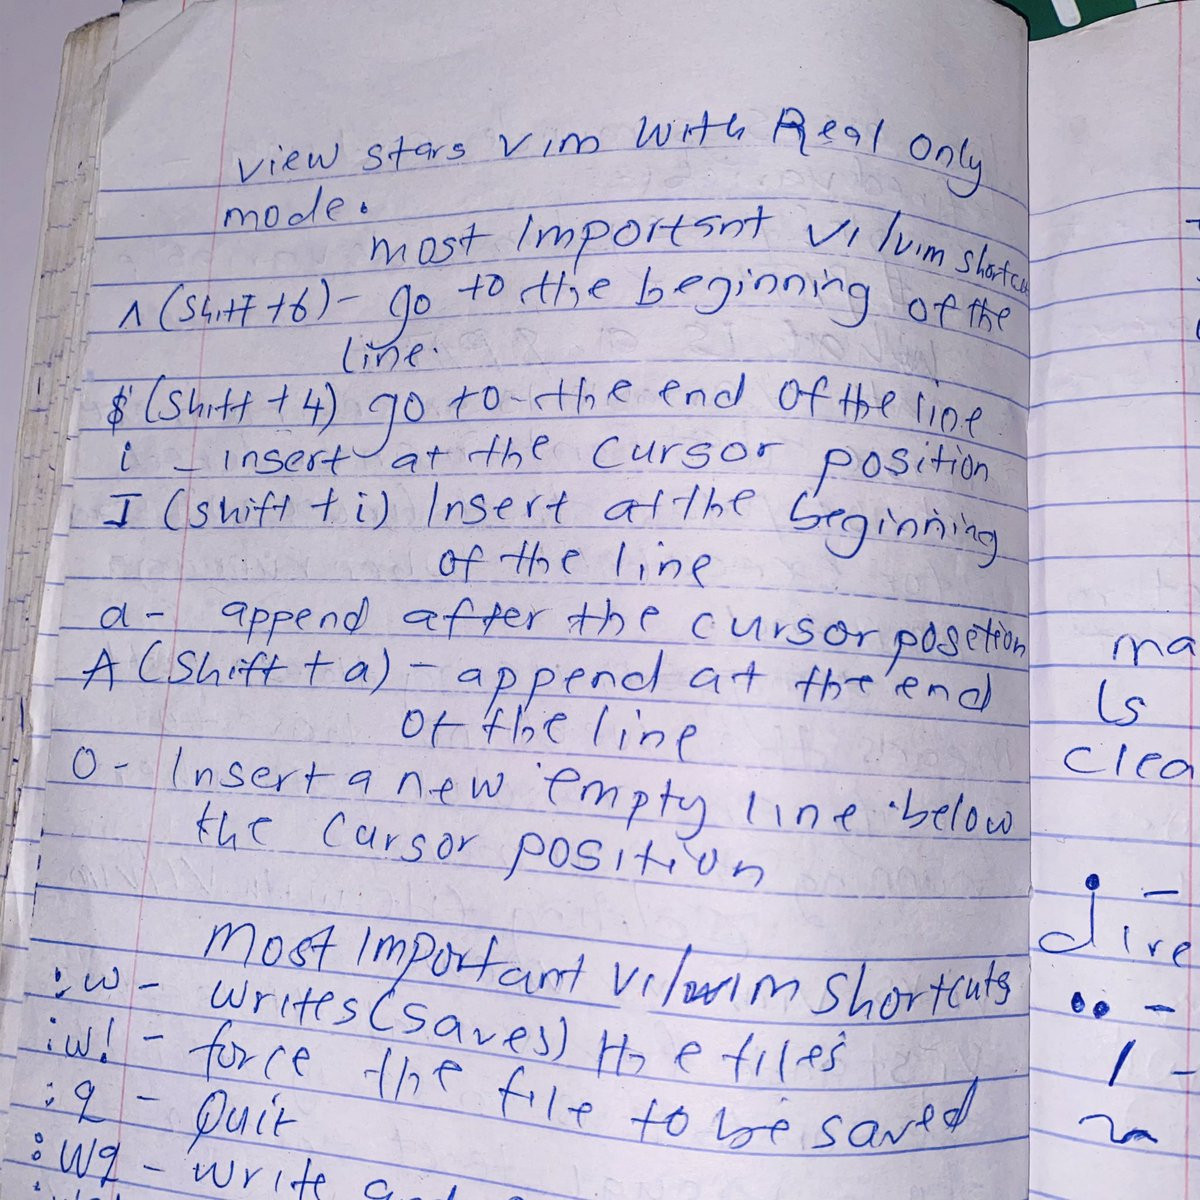 view stars vim with Real only
mode.
most Important vi/vim shortcu
^ (Shift +6) - go to the beginning of the
line.
$ (Shift + 4) go to the end of the line
i - insert at the cursor position
I (shift + i) Insert at the beginning
of the line
a - append after the cursor posetion
A (Shift + a) - append at the end
of the line
O - Insert a new empty line below
the cursor position
most Important vi/vim shortcuts
:w - writes (saves) the files
:w! - force the file to be saved
:q - Quit
:wq - write and
ma
is
clea
. -
dire
.. -
/ -
~